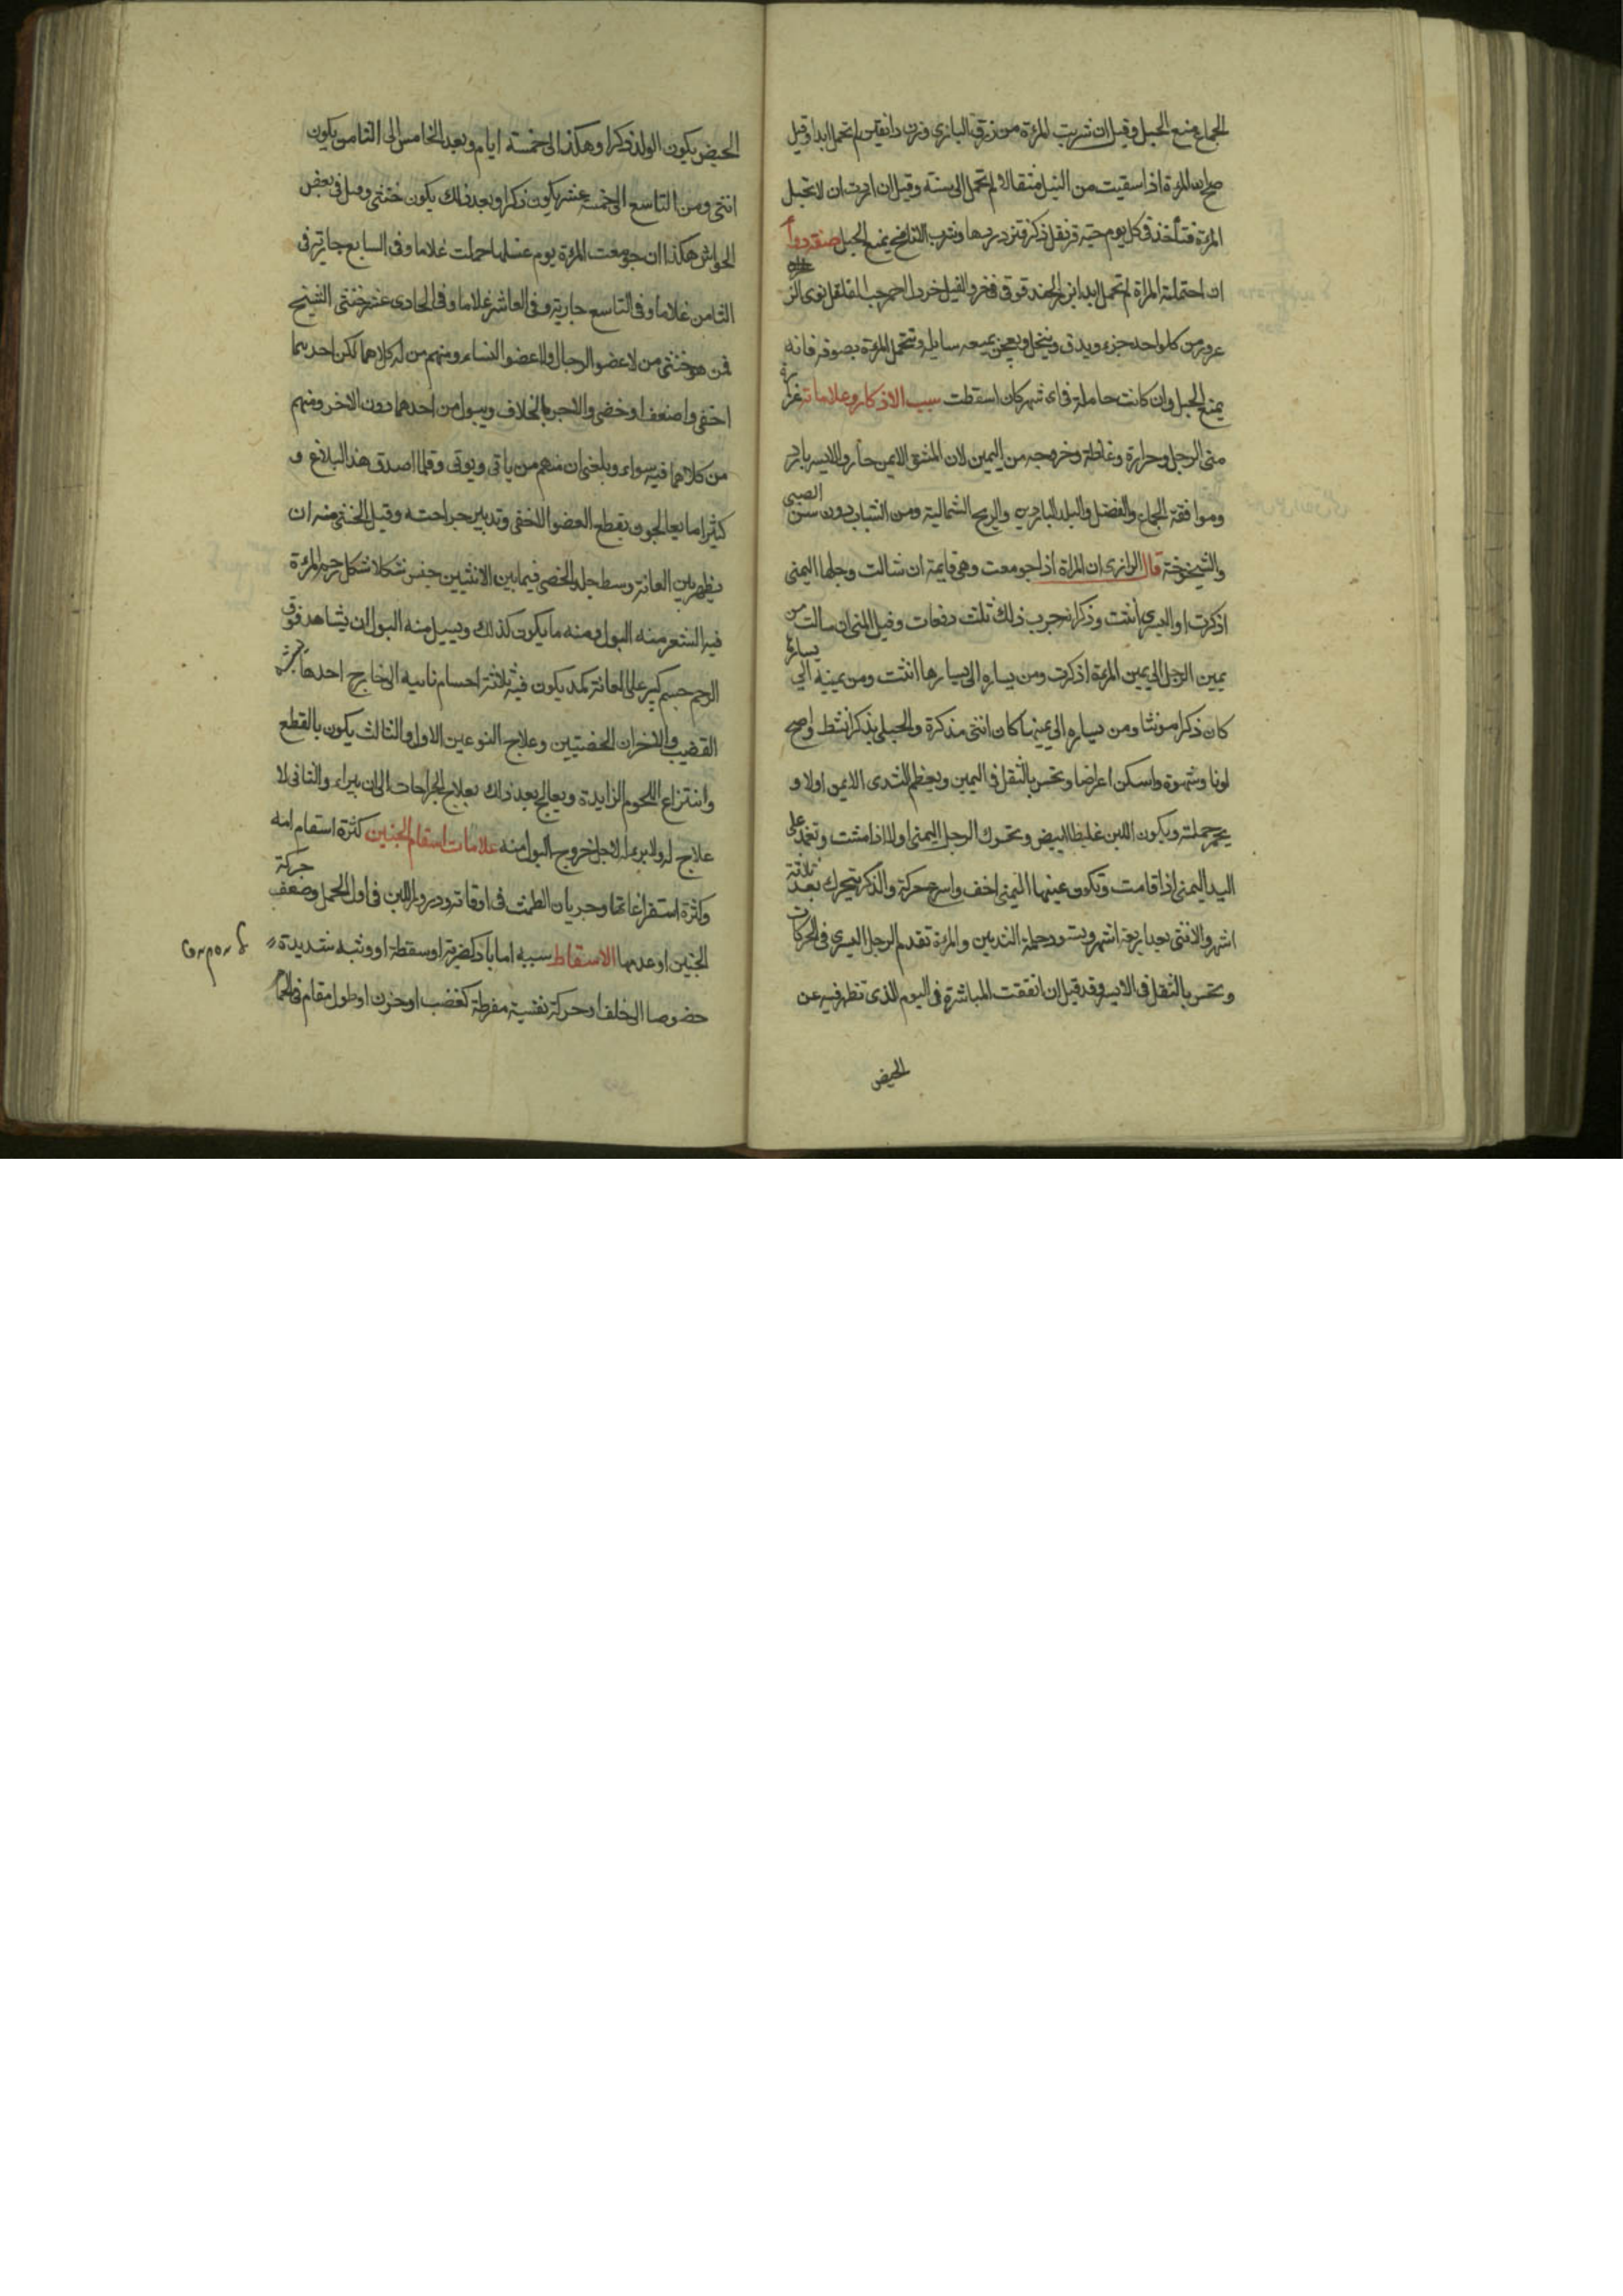 الجماع منع الحبل وقيل ان شربت المرءة من زرق البازى وزن دانقين لم تحمل ابدا وقيل
صح ان المرءة اذا سقيت من النيل مثقالا لم تحمل الى سنة وقيل ان اردت ان لا تحبل
المرءة فتأخذ فى كل يوم حبة قرنفل ذكر فتزدردها وشرب الانافح يمنع الحبل صفة دوآ
ان احتملته المراة لم تحمل ابدا خرو الفيل خردل احمر حب القلقل نوى
من كل واحد جزء ويدق وينخل ويعجن بميعه سايله وتتحمل المرءة بصوفه فانه
يمنع الحبل وان كانت حاملة فى اى شهر كان اسقطت سبب الاذكار وعلاماته غزارة
منى الرجل وحرارة وغلظه وخروجه من اليمين لان الشق الايمن حار والايسر بارد
وموافقة الجماع والفصل والبلد البارد والريح الشمالية ومن الشباب دون سن الصبى
والشيخوخة قال الرازى ان المراة اذا جومعت وهى قايمة ان شالت رجلها اليمنى
اذكرت او اليسرى انثت وذكر انه جرب ذلك ثلث دفعات وقيل المنى ان سالت من
يمين الرجل الى يمين المرءة اذكرت ومن يساره الى يسارها انثت ومن يمينه الى يسارها
كان ذكرا مونثا ومن يساره الى يمينها كان انثى مذكرة والحبلى بذكر انشط واصح
لونا وشهوة واسكن اعراضا وتحس بالثقل فى اليمين ويعظم الثدى الايمن اولا و
يحمر حملته ويكون اللبن غليظا ابيض وتحرك الرجل اليمنى اولا اذا مشت وتعتمد على
اليد اليمنى اذا قامت وتكون عينها اليمنى اخف واسرع حركة والذكر يتحرك بعد ثلاثة
اشهر والانثى بعد اربعة اشهر ويسود حملة الثديين والمرءة تقدم الرجل اليسرى فى الحركات
وتحس بالثقل فى الايسر وقد قيل ان اتفقت المباشرة فى اليوم الذى تطهر فيه عن
الحيض
الحيض يكون الولد ذكرا وهكذا الى خمسة ايام وبعد الخامس الى الثامن يكون
انثى ومن التاسع الى خمسة عشر يكون ذكرا وبعد ذلك يكون خنثى وقيل فى بعض
الحواش هكذا ان جومعت المرءة يوم غسلها حملت غلاما وفى السابع جارية فى
الثامن غلاما وفى التاسع جارية وفى العاشر غلاما وفى الحادى عشر خنثى الشيخ
فمن هو خنثى من لا عضو الرجال ولا عضو النساء ومنهم من له كلاهما لكن احديهما
اخفى واضعف او خفى والاخر بالخلاف ويبول من احدهما دون الاخر ومنهم
من كلاهما فيه سواء وبلغنى ان منهم من ياتى ويوتى وقلما اصدق هذا البلاغ و
كثيرا ما يعالجون بقطع العضو الاخفى وتدبير جراحته وقيل الخنثى منه ان
يظهر بين العانة وسط جلد الخصى فيما بين الانثيين شكلا شكل رحم المرءة
فيه الشعر منه البول ومنه ما يكون كذلك ويسيل منه البول ان يشاهد فوق
الرحم جسم كبير على العانة يكون فيه ثلاثة اجسام ناتيه الى خارج احدها
القضيب والاخران الخصيتين وعلاج النوعين الاول والثالث يكون بالقطع
وانتزاع اللحوم الزايدة ويعالج بعد ذلك بعلاج الجراحات الى ان يبراء والثانى لا
علاج له ولا برء لاجل خروج البول منه علامات اسقام الجنين كثرة اسقام امه
وكثرة استفراغاتها وجريان الطمث فى اوقاته ودرور اللبن فى اول الحمل وضعف حركة
الجنين او عدمها الاسقاط سببه اما باد كضربة او سقطة او وثبة شديدة
خصوصا الى خلف او حركة نفسية مفرطة كغضب او حزن او طول مقام فى الحمام